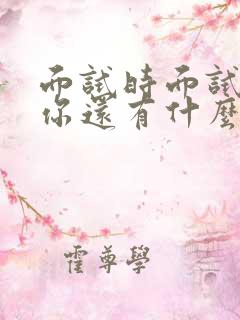 而試時而試
你還有什麼
霍尊學